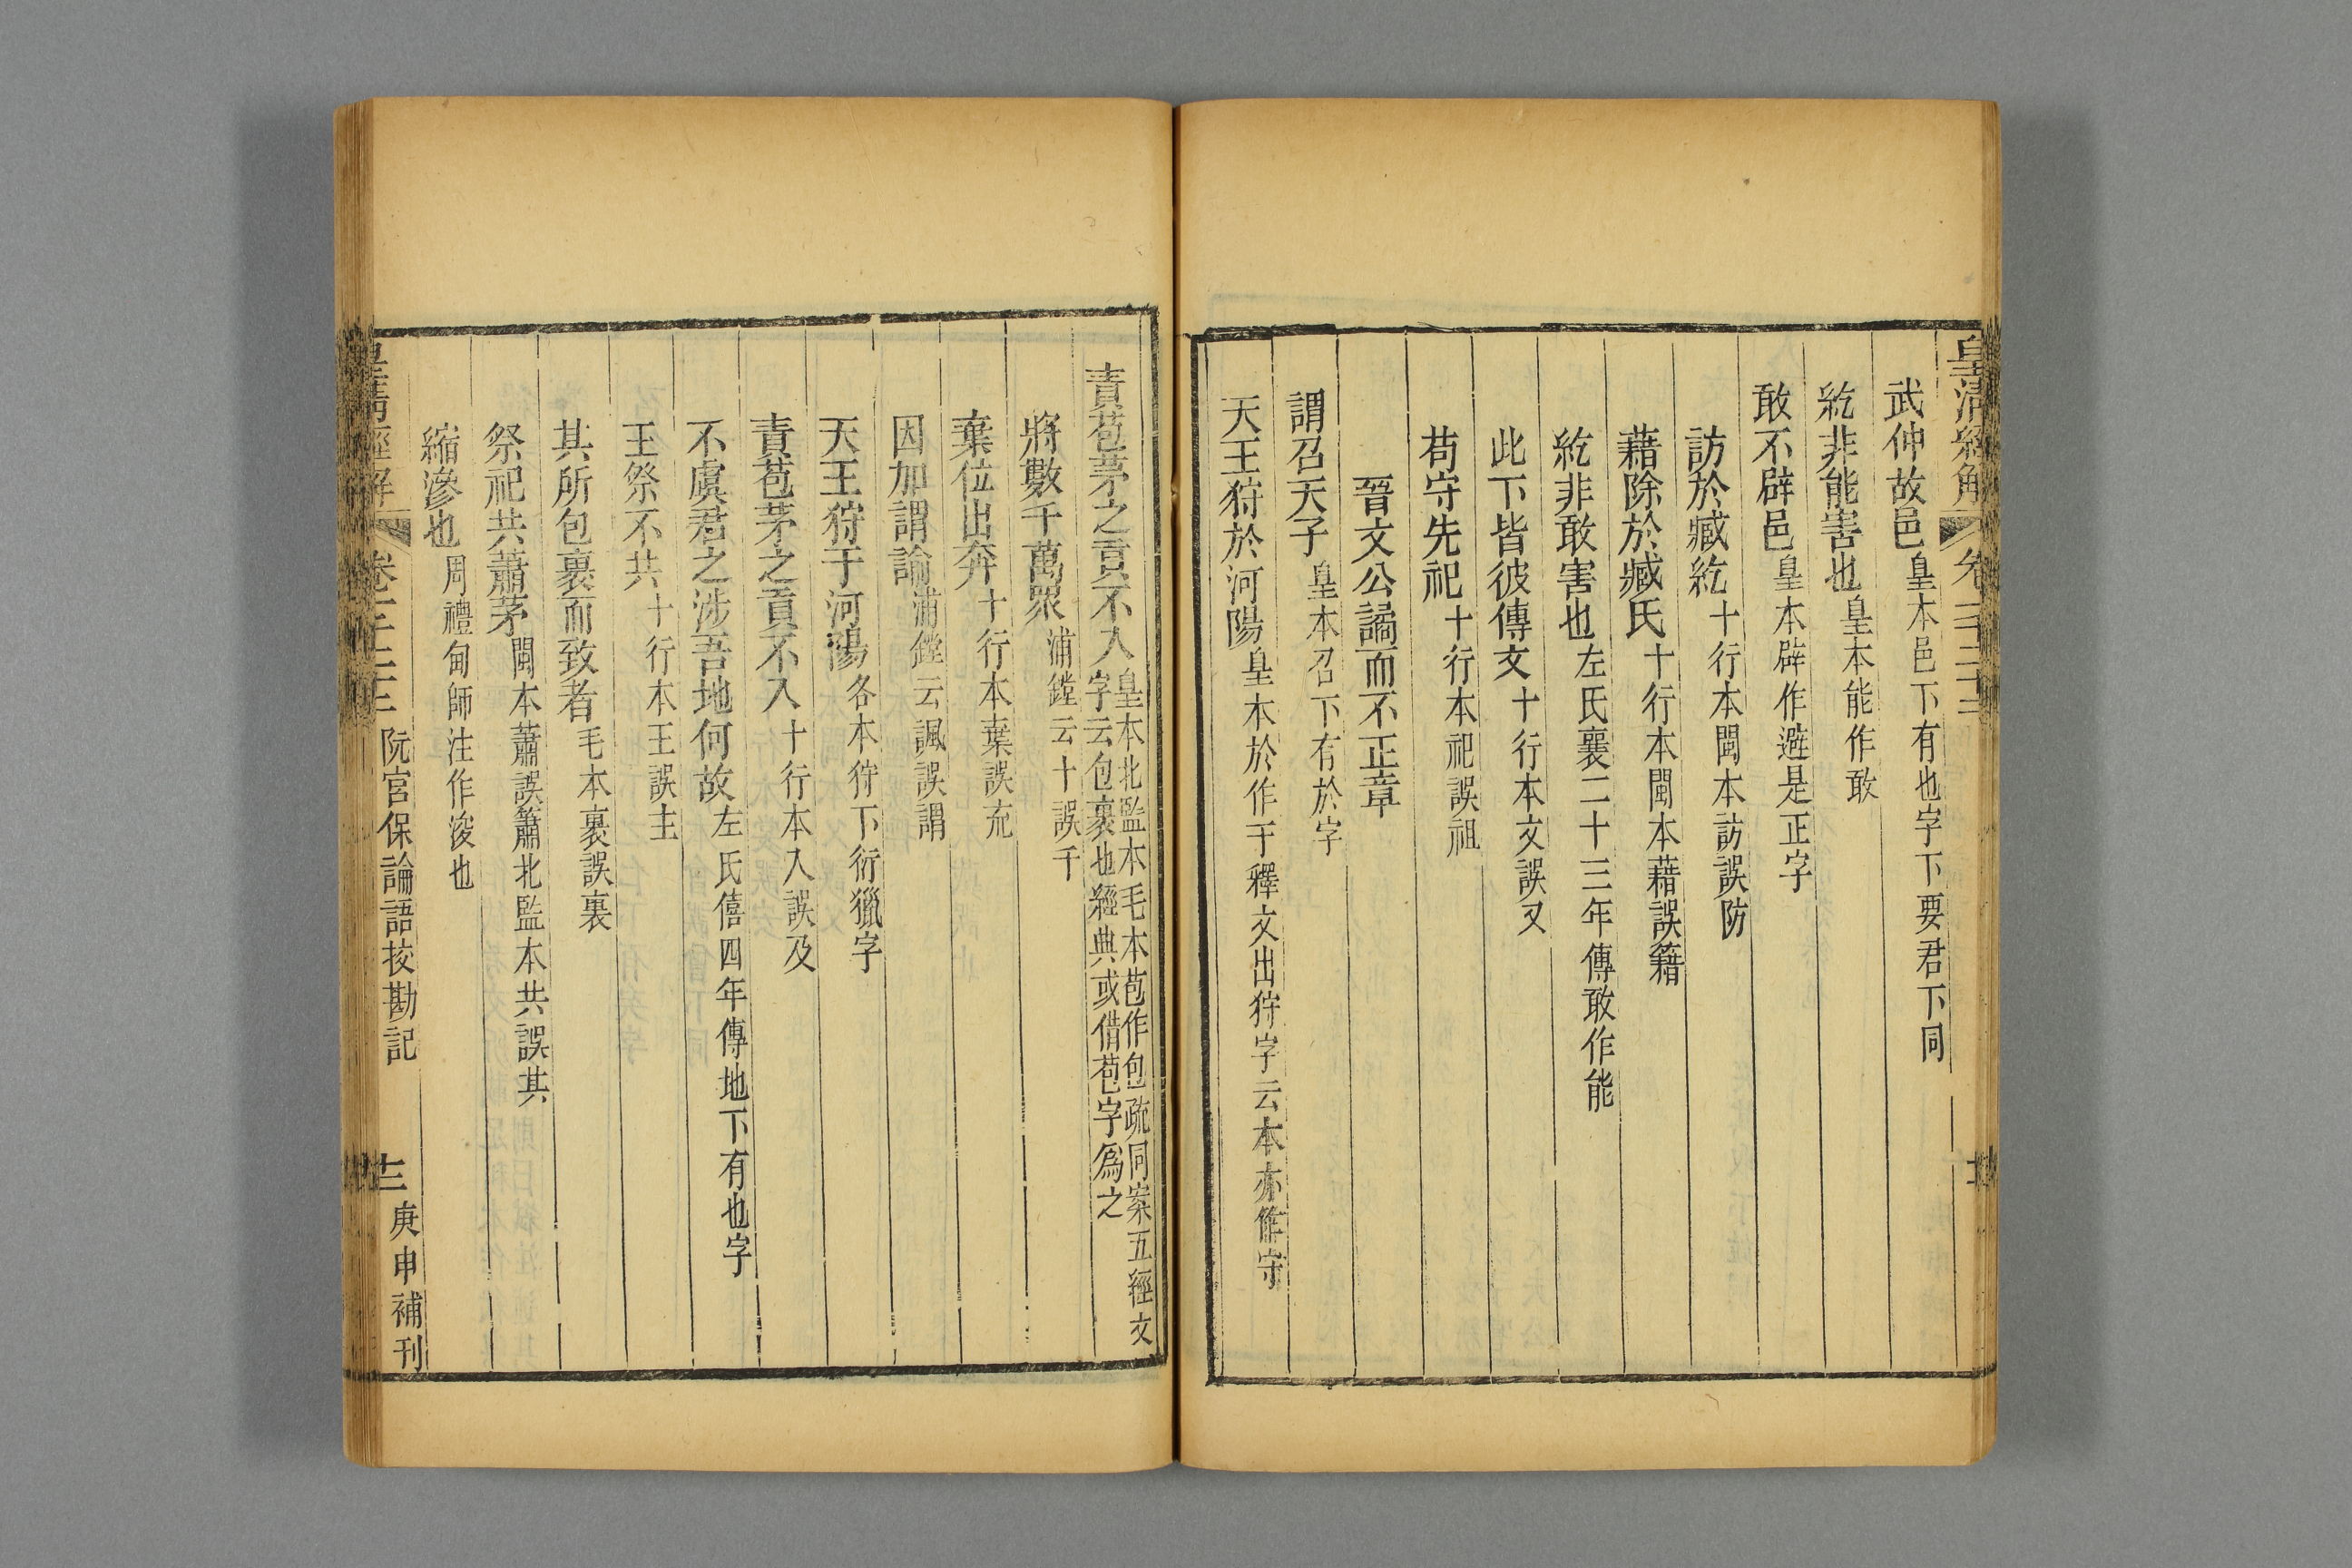 皇清經解 卷
武仲故邑皇本邑下有也字下要君下同
紇非能害也皇本能作敢
敢不辟邑皇本辟作避是正字
訪於臧紇十行本閩本訪誤防
藉除於臧氏十行本閩本藉誤籍
紇非敢害也左氏襄二十三年傳敢作能
此下皆彼傳文十行本文誤又
苟守先祀十行本祀誤祖
晉文公譎而不正章
謂召天子皇本召下有於字
天王狩於河陽皇本於作于釋文出狩字云本亦作守
責苞茅之貢不入皇本北監本毛本苞作包疏同案五經文
字云包裹也經典或借苞字爲之
將數千萬眾浦鏜云十誤千
棄位出奔十行本棄誤充
因加謂諭浦鏜云諷誤謂
天王狩于河陽各本狩下衍獵字
責苞茅之貢不入十行本入誤及
不虞君之涉吾地何故左氏僖四年傳地下有也字
王祭不共十行本王誤主
其所包裹而致者毛本裹誤裏
祭祀共蕭茅閩本蕭誤簫北監本共誤其
縮滲也周禮甸師注作浚也
皇清經解 卷 阮宮保論語挍勘記 庚申補刊